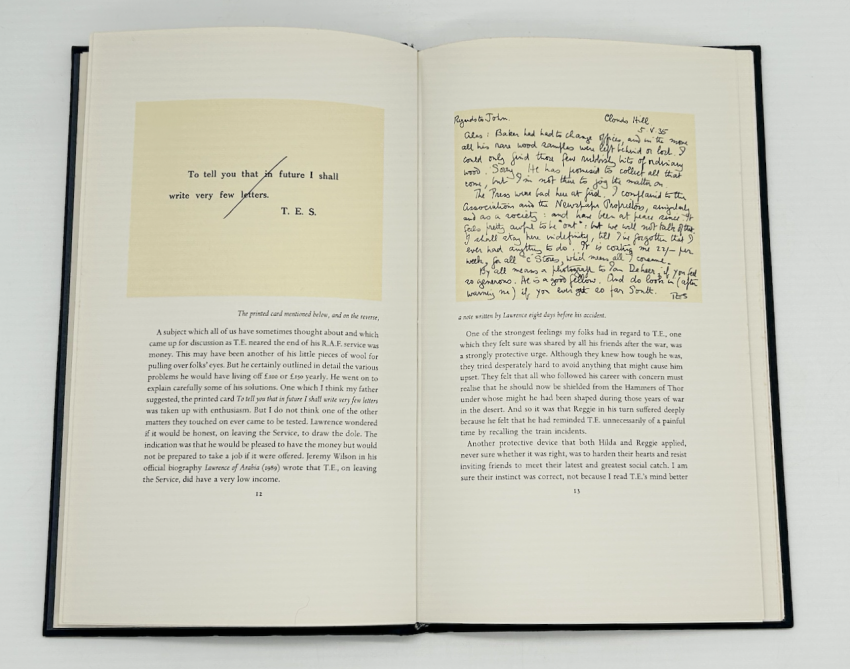 To tell you that in future I shall
write very few letters.
T. E. S.
The printed card mentioned below, and on the reverse,
A subject which all of us have sometimes thought about and which
came up for discussion as T.E. neared the end of his R.A.F. service was
money. This may have been another of his little pieces of wool for
pulling over folks' eyes. But he certainly outlined in detail the various
problems he would have living off £100 or £150 yearly. He went on to
explain carefully some of his solutions. One which I think my father
suggested, the printed card To tell you that in future I shall write very few letters
was taken up with enthusiasm. But I do not think one of the other
matters they touched on ever came to be tested. Lawrence wondered
if it would be honest, on leaving the Service, to draw the dole. The
indication was that he would be pleased to have the money but would
not be prepared to take a job if it were offered. Jeremy Wilson in his
official biography Lawrence of Arabia (1989) wrote that T.E., on leaving
the Service, did have a very low income.
12
Clouds Hill
5 V 35
Alas: Baker had had to change offices, and in the move
all his rare wood samples were left behind or lost. I
could only find those few rubbishy bits of ordinary
wood. Sorry. He has promised to collect all that
come, but I'm not this to jog the matter on
The Press were bad here at first. I complained to the
Association and the Newspaper Proprietors, singularly
and as a society: and have been at peace since. It
feels pretty awful to be "out": but we will not talk of that.
I shall stay here indefinitely, till I've forgotten that I
ever had anything to do. It is costing me 22/– per
week, for all 'C' Stores, which means all I consume.
By all means a photograph to Ian Deheer, if you feel
so generous. He is a good fellow. And do look in (after
warning me) if you ever get so far South.
TES
a note written by Lawrence eight days before his accident.
One of the strongest feelings my folks had in regard to T.E., one
which they felt sure was shared by all his friends after the war, was
a strongly protective urge. Although they knew how tough he was,
they tried desperately hard to avoid anything that might cause him
upset. They felt that all who followed his career with concern must
realise that he should now be shielded from the Hammers of Thor
under whose might he had been shaped during those years of war
in the desert. And so it was that Reggie in his turn suffered deeply
because he felt that he had reminded T.E. unnecessarily of a painful
time by recalling the train incidents.
Another protective device that both Hilda and Reggie applied,
never sure whether it was right, was to harden their hearts and resist
inviting friends to meet their latest and greatest social catch. I am
sure their instinct was correct, not because I read T.E.'s mind better
13